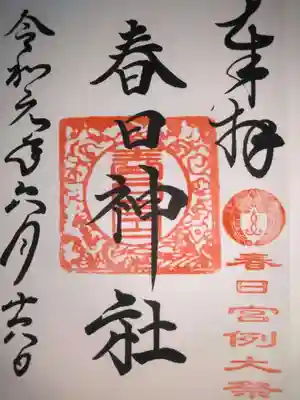 奉拝
春日宮例大祭
春日神社
令和元年六月廿八日